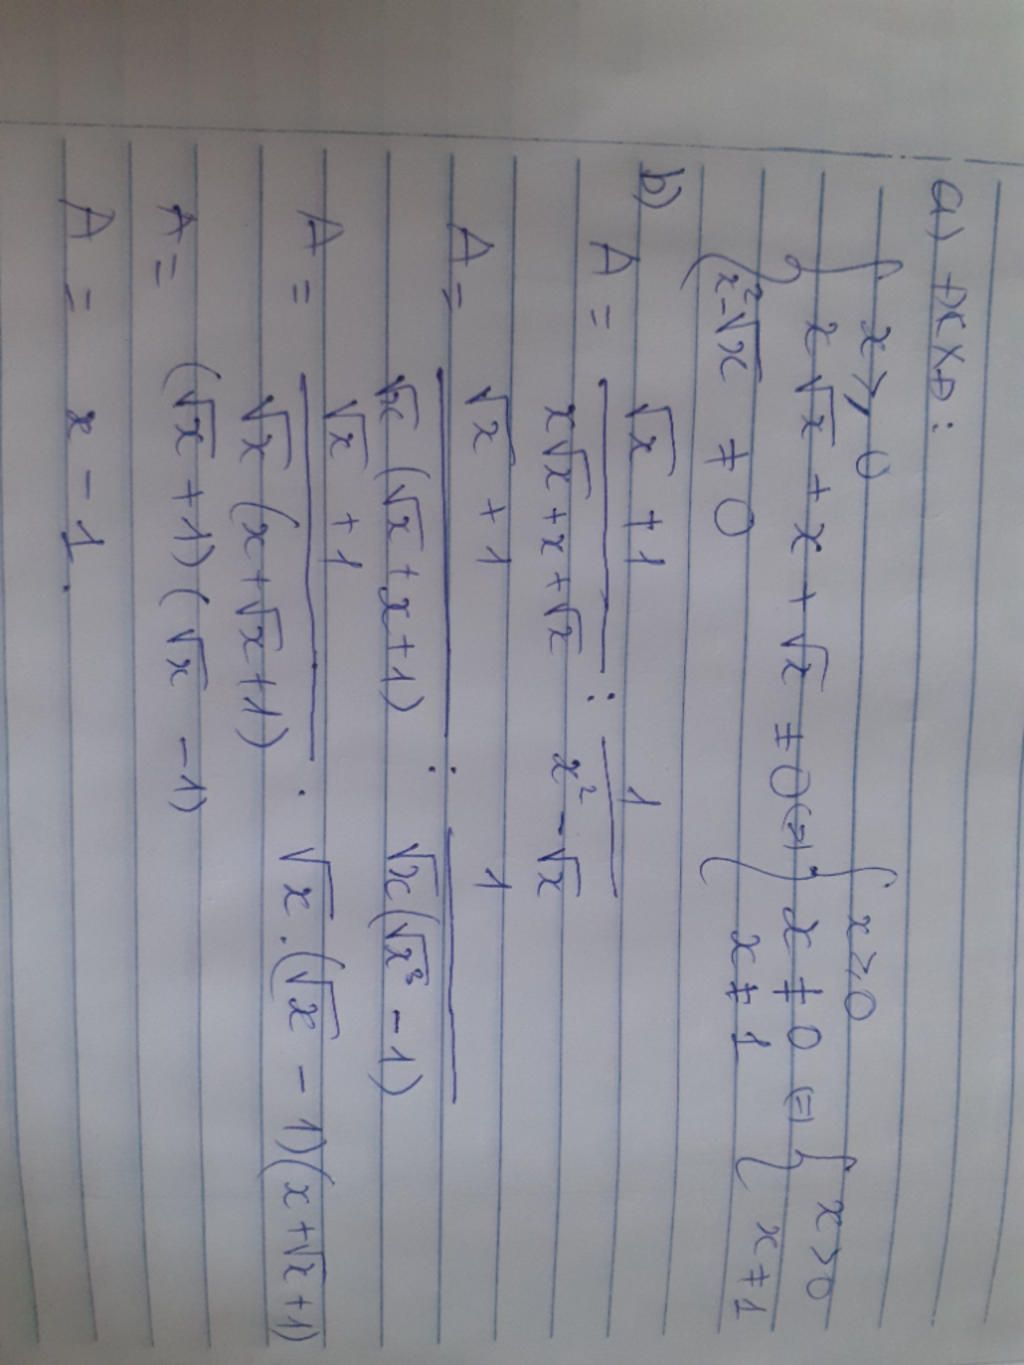 a) ĐKXĐ:
{ x ≥ 0 { x ≥ 0 { x > 0
{ x√x + x + √x ≠ 0 (=) { x ≠ 0 (=) { x ≠ 1
{ x² - √x ≠ 0 { x ≠ 1
b) A = (√x + 1)/(x√x + x + √x) : 1/(x² - √x)
A = (√x + 1)/(√x (√x + x + 1)) : 1/(√x (√x³ - 1))
A = (√x + 1)/(√x (x + √x + 1)) . √x . (√x - 1)(x + √x + 1)
A = (√x + 1)(√x - 1)
A = x - 1.